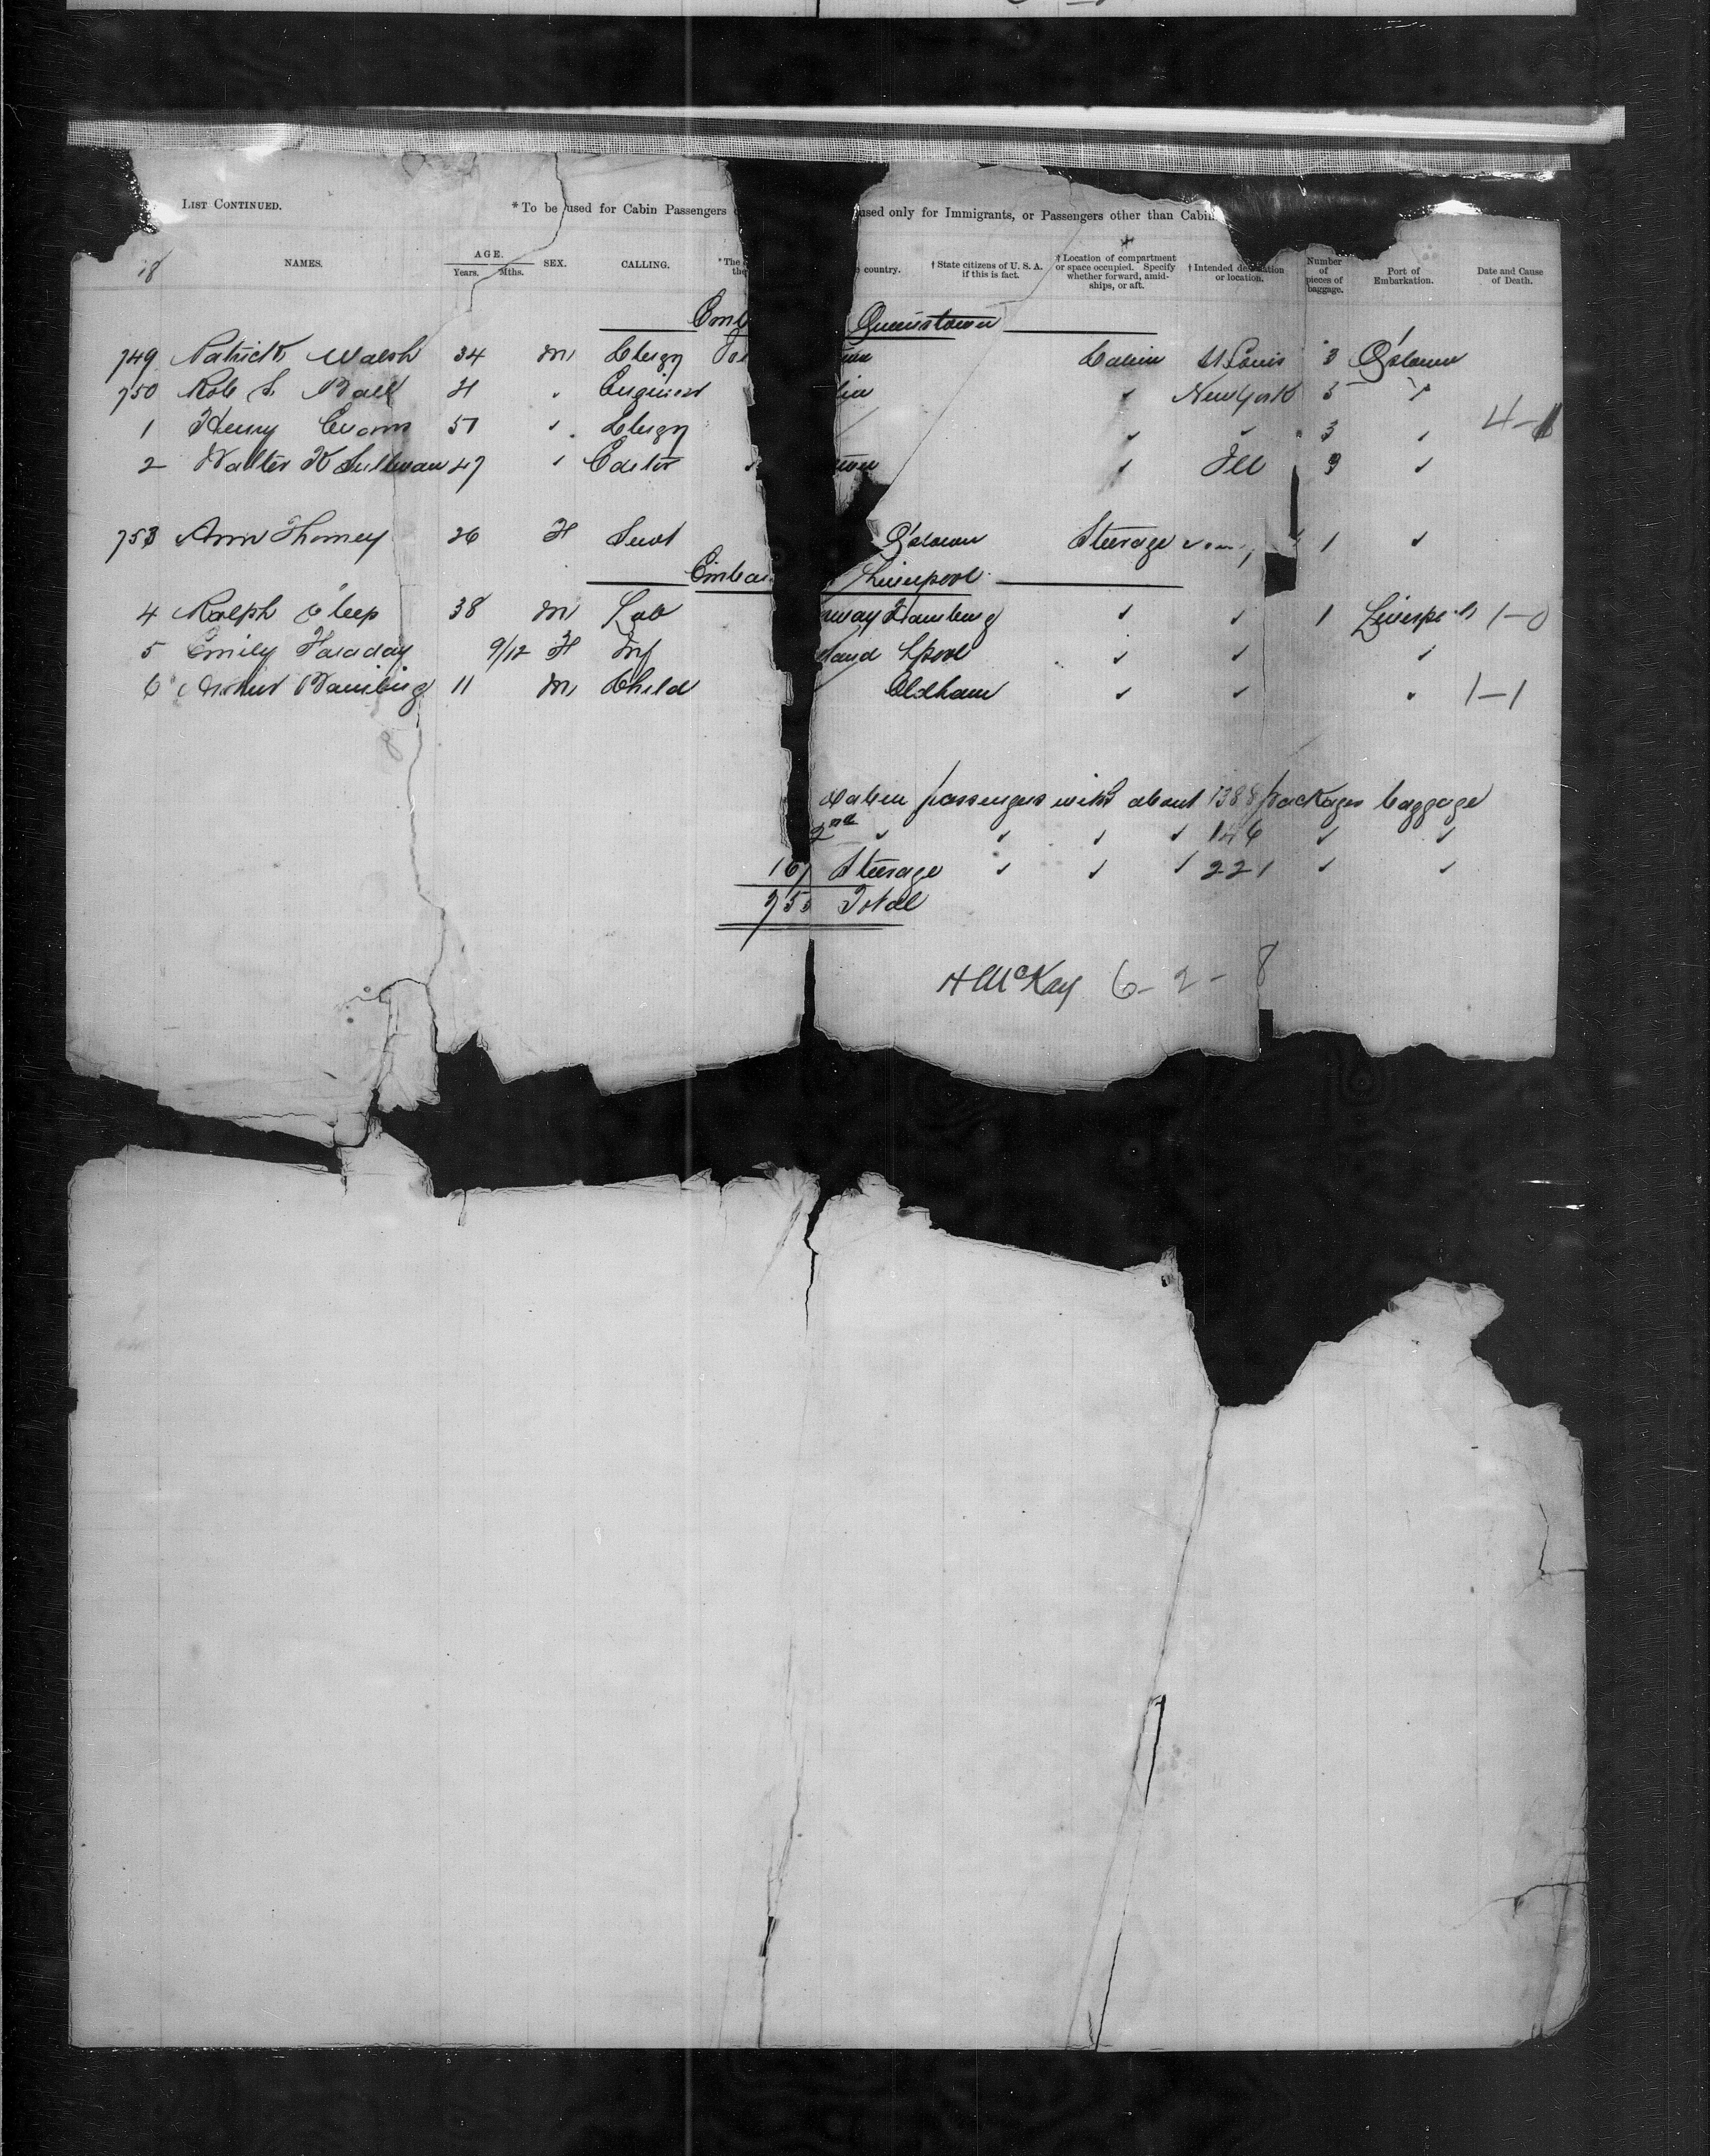 LIST CONTINUED.
* To be used for Cabin Passengers used only for Immigrants, or Passengers other than Cabin
18 NAMES. AGE. Years. Mths. SEX. CALLING. * The the country. † State citizens of U. S. A. if this is fact. † Location of compartment or space occupied. Specify whether forward, amidships, or aft. † Intended destination or location. Number of pieces of baggage. Port of Embarkation. Date and Cause of Death.
Queenstown
749 Patrick Walsh 34 M Clergy Cabin St Louis 3 Q'stown
750 Rob S. Ball Engineer ✓ New York 5 "
1 Henry Evans 51 ✓ Clergy ✓ ✓ 3 ✓ 4-
2 Walter K Sullivan 47 ✓ Editor ✓ ✓ Ill 9 ✓
753 Ann Thorney 26 F Servt Q'stown Steerage 1 ✓
Liverpool
4 Ralph 38 M Lab Hamburg ✓ ✓ 1 Liverpool 1-0
5 Emily Faraday 9/12 F Inf land Lpool ✓ ✓ ✓
6 Arthur 11 M Child Oldham ✓ ✓ " 1-1
Cabin passengers with about 1388 packages baggage
2nd ✓ ✓ ✓ ✓ 146 ✓ ✓
167 Steerage ✓ ✓ ✓ 221 ✓ ✓
755 Total
H McKay 6-2-8